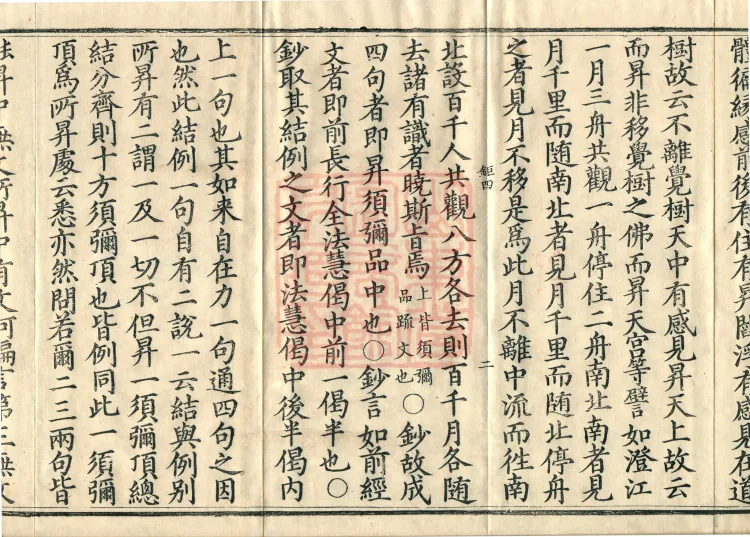 體循緣感前後有住有昇閻浮有感見在道
樹故云不離覺樹天中有感見昇天上故云
而昇非移覺樹之佛而昇天宮等譬如澄江
一月三舟共觀一舟停住二舟南北南者見
月千里而随南北者見月千里而随北停舟
之者見月不移是為此月不離中流而徃南
鉅四
二
北設百千人共觀八方各去則百千月各随
去諸有識者曉斯旨焉上皆須彌品䟽文也〇鈔故成
四句者即昇須彌品中也〇鈔言如前經
文者即前長行全法慧偈中前一偈半也〇
鈔取其結例之文者即法慧偈中後半偈内
上一句也其如来自在力一句通四句之因
也然此結例一句自有二說一云結與例别
所昇有二謂一及一切不但昇一須彌頂總
結分齊則十方須彌頂也皆例同此一須彌
頂為所昇處云悉亦然問若爾二三兩句皆